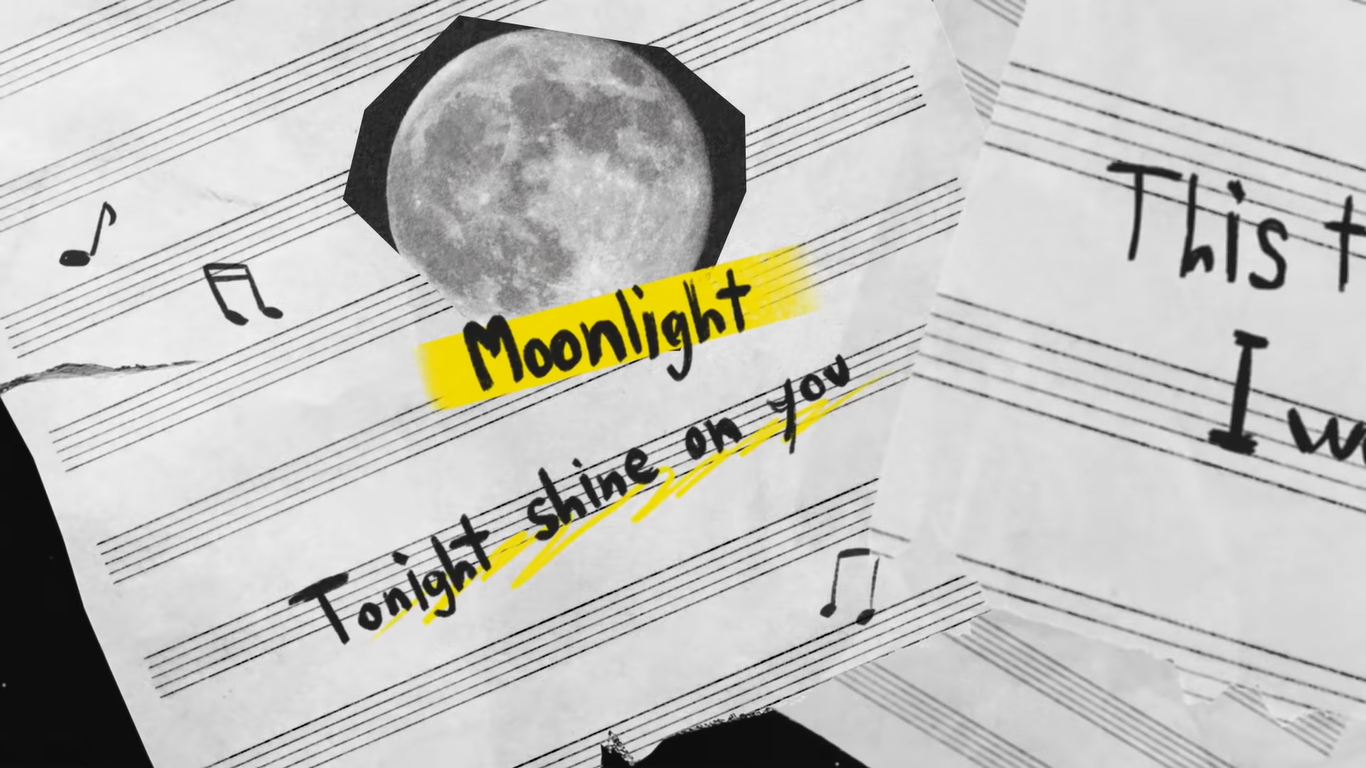 Moonlight
Tonight shine on you
This t
I w